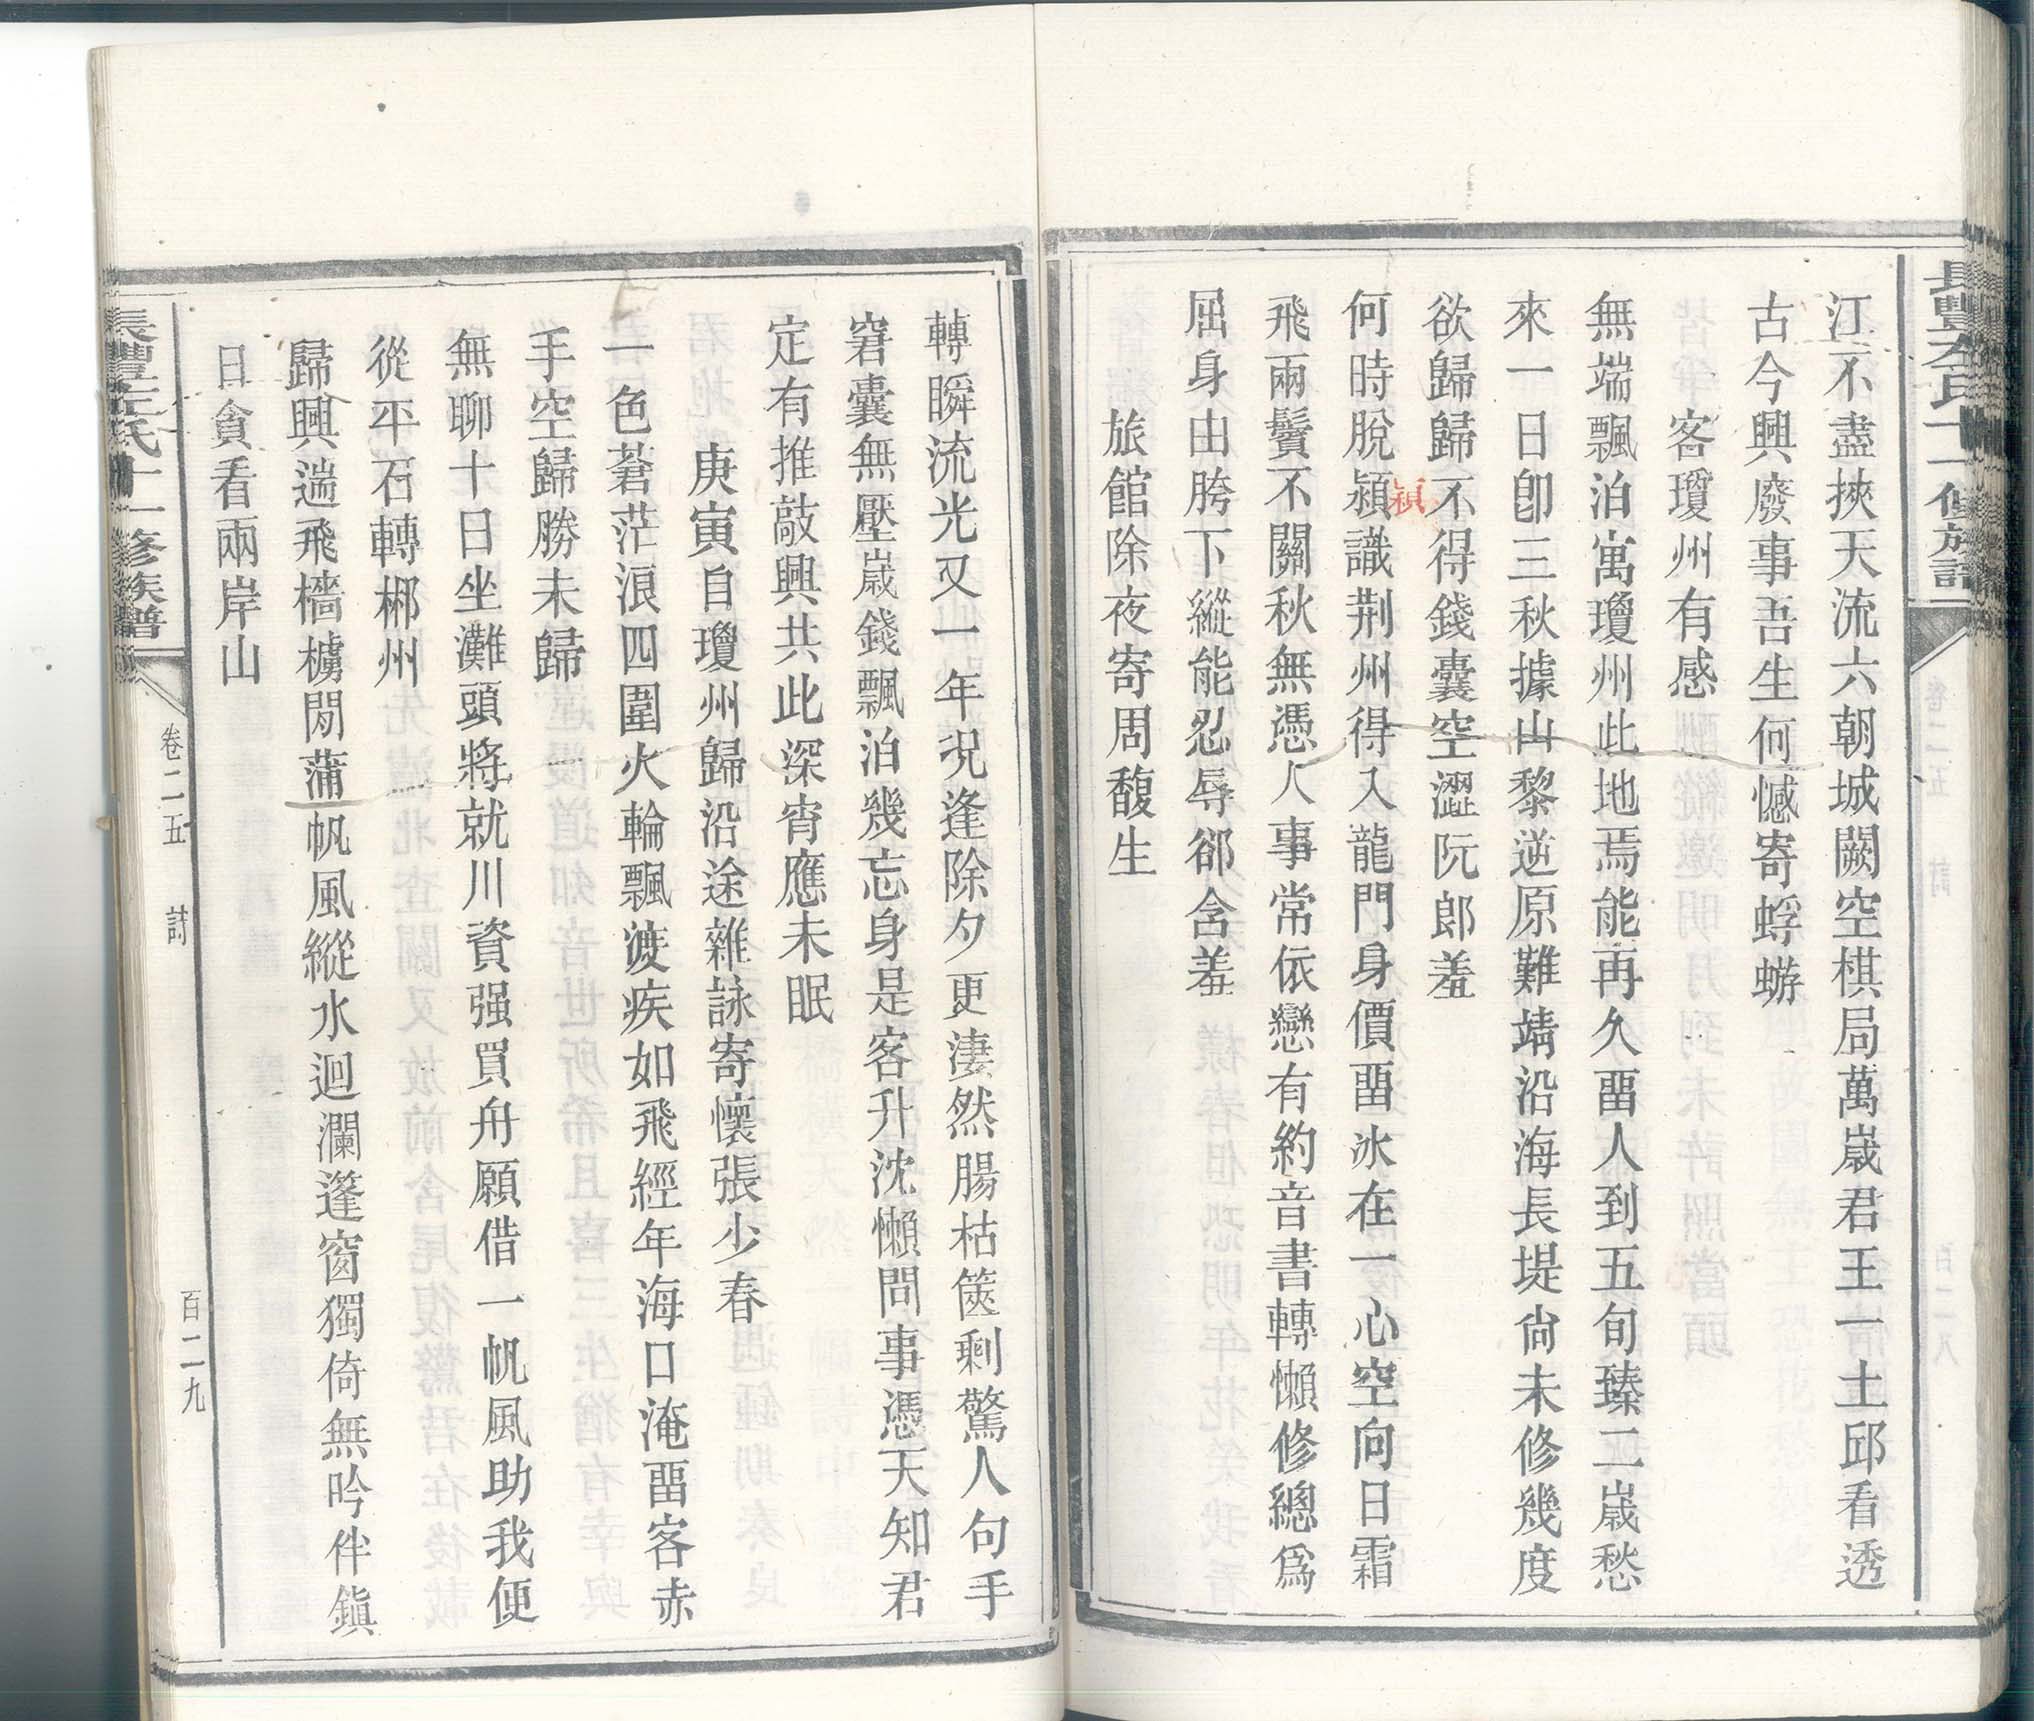 江不盡挾天流六朝城闕空棋局萬歲君王一土邱看透
古今興廢事吾生何憾寄蜉蝣
客瓊州有感
無端飄泊寓瓊州此地焉能再久畱人到五旬臻二歲愁
來一日卽三秋據山黎逆原難靖沿海長堤尙未修幾度
欲歸歸不得錢囊空澀阮郎羞
何時脫潁識荆州得入龍門身價畱冰在一心空向日霜
穎
飛兩鬢不關秋無憑人事常依戀有約音書轉懶修總爲
屈身由胯下縱能忍辱郤含羞
旅館除夜寄周馥生
轉瞬流光又一年況逢除夕更淒然腸枯篋剩驚人句手
窘囊無壓歲錢飄泊幾忘身是客升沈懶問事憑天知君
定有推敲興共此深宵應未眠
庚寅自瓊州歸沿途雜詠寄懷張少春
一色蒼茫浪四圍火輪飄渡疾如飛經年海口淹畱客赤
手空歸勝未歸
無聊十日坐灘頭將就川資强買舟願借一帆風助我便
從平石轉郴州
歸興遄飛檣櫓閒蒲帆風縱水迴瀾篷窗獨倚無吟伴鎭
日貪看兩岸山
長豐左氏十一修族譜
卷二五
詩
百二九